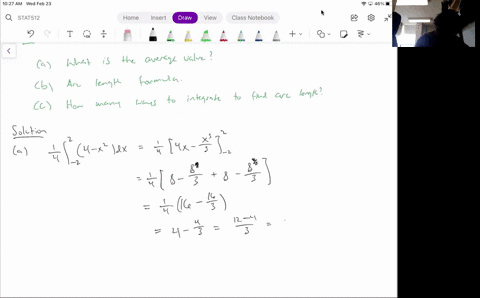 10:27 AM Wed Feb 23
46%
STAT512
Draw
Insert
Draw
View
Class Notebook
(a) What is the average value?
(b) Arc length formula.
(c) How many ways to integrate to find arc length?
Solution
(a) 1/4 ∫_{-2}^{2} (4-x²)dx = 1/4 [4x - x³/3]_{-2}^{2}
= 1/4 [8 - 8/3 + 8 - 8/3]
= 1/4 (16 - 16/3)
= 4 - 4/3 = 12-4/3 =